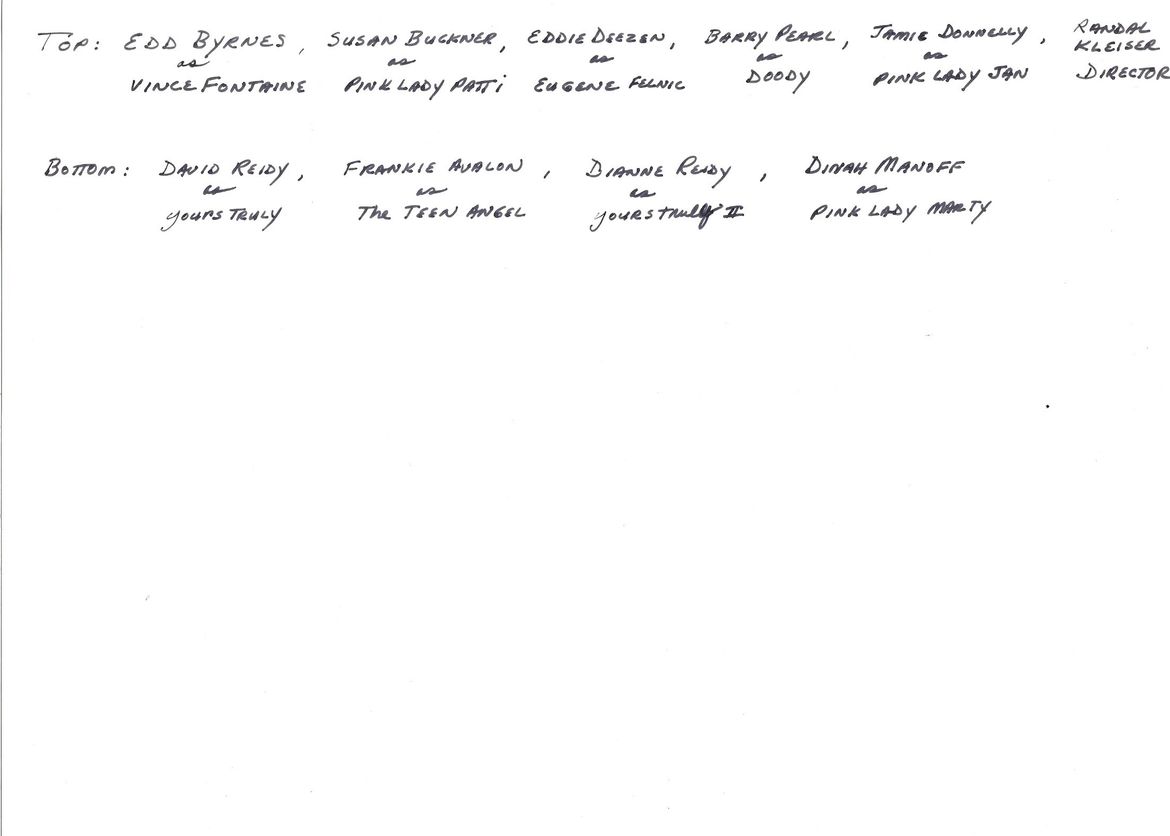 TOP: EDD BYRNES, SUSAN BUCKNER, EDDIE DEEZEN, BARRY PEARL, JAMIE DONNELLY, RANDAL KLEISER
as as as as as
VINCE FONTAINE PINK LADY PATTI EUGENE FELNIC DOODY PINK LADY JAN DIRECTOR
BOTTOM: DAVID REIDY, FRANKIE AVALON, DIANNE REIDY, DINAH MANOFF
as as as as
YOURS TRULY The TEEN ANGEL YOURS TRULY II PINK LADY MARTY